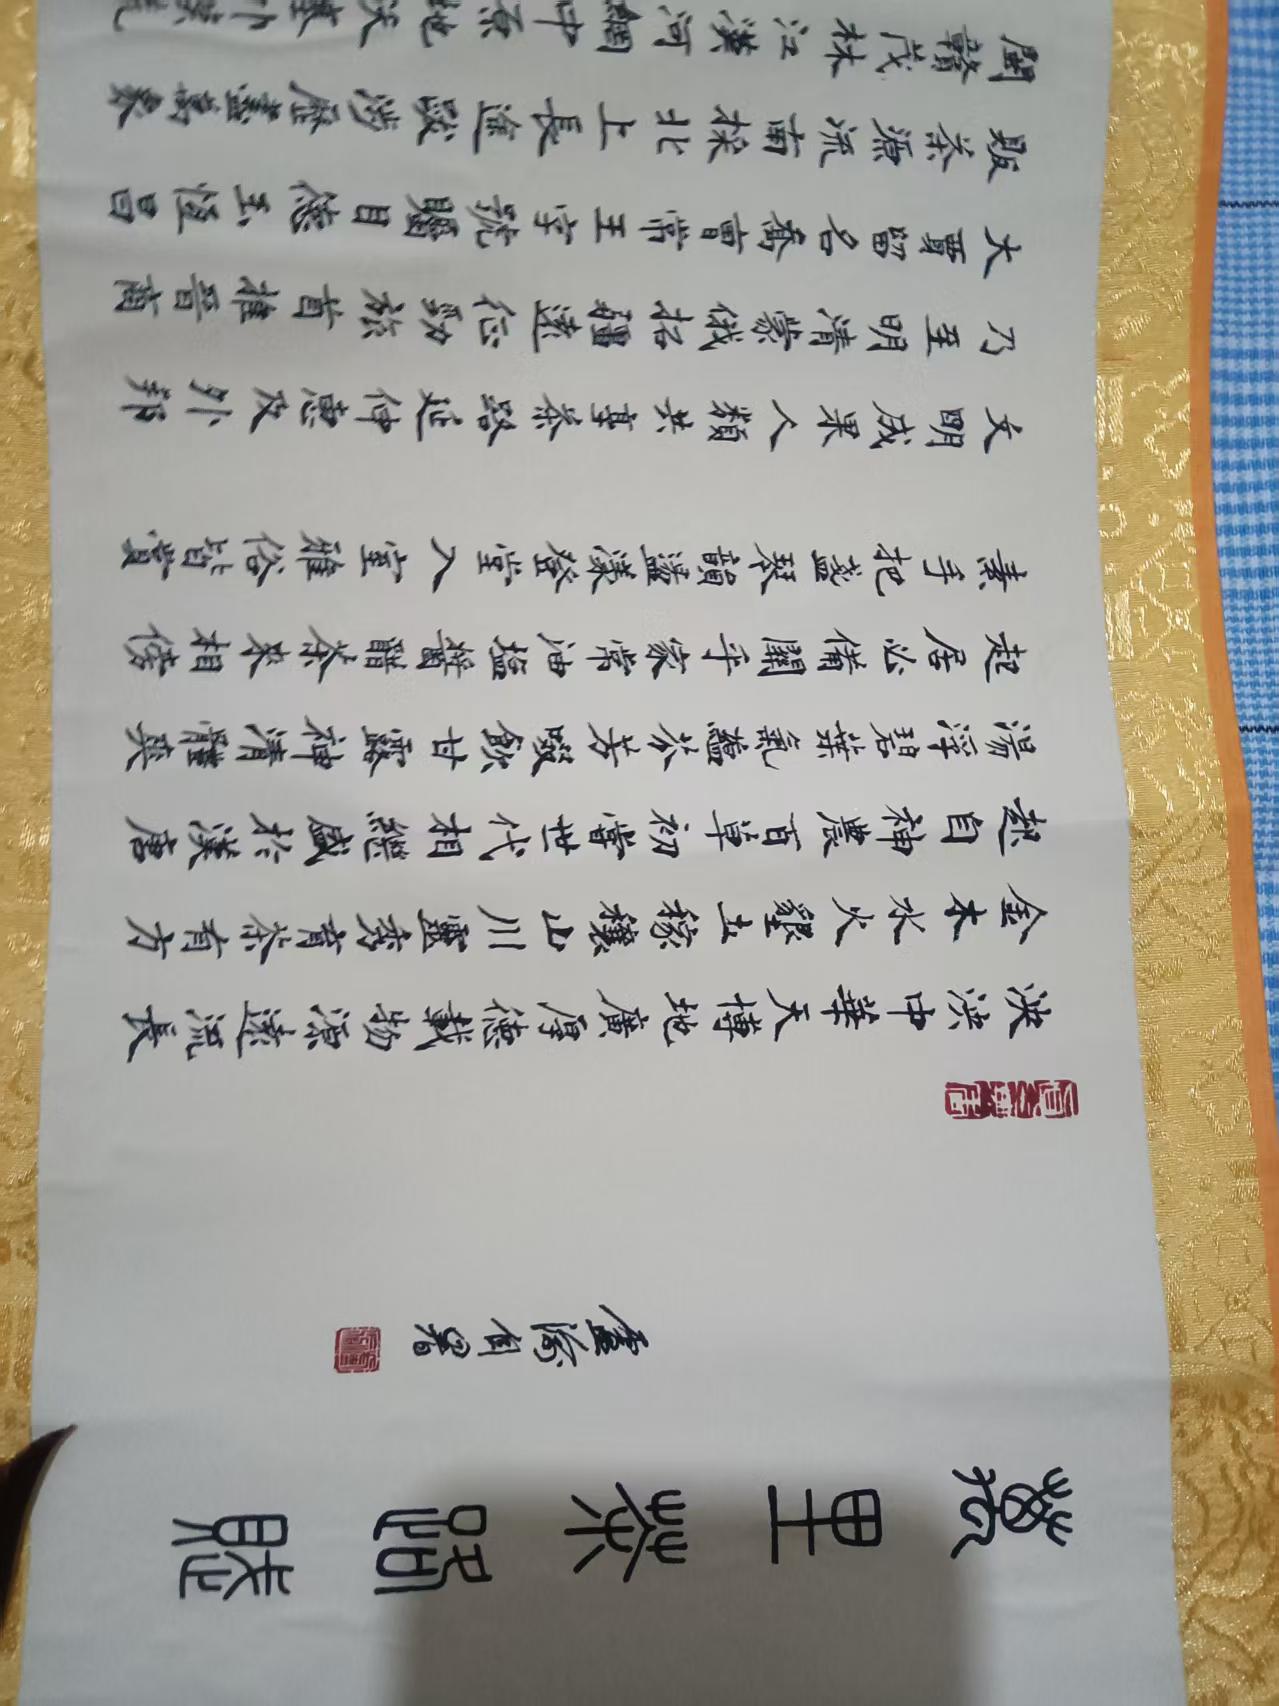 萬里茶路賦
自署
泱泱中華天博地廣厚德載物源遠流長
金木水火墾土稼穡山川靈秀育茶有方
起自神農百草初嘗世代相繼盛於漢唐
湯浮碧葉氣蘊芬芳啜飲甘露神清體爽
起居必備關乎家常油塩醬醋茶來相傍
素手把盞琴韻盪漾登堂入室雅俗皆賞
文明成果人類共享茶路延伸惠及外邦
乃至明清蒙俄拓疆遠征勁旅首推晉商
大賈留名喬曹常王字號矚目德玉恆昌
販茶源流南採北上長途跋涉歷盡萬象
閩贛茂林江漢河網中原地沃塞外